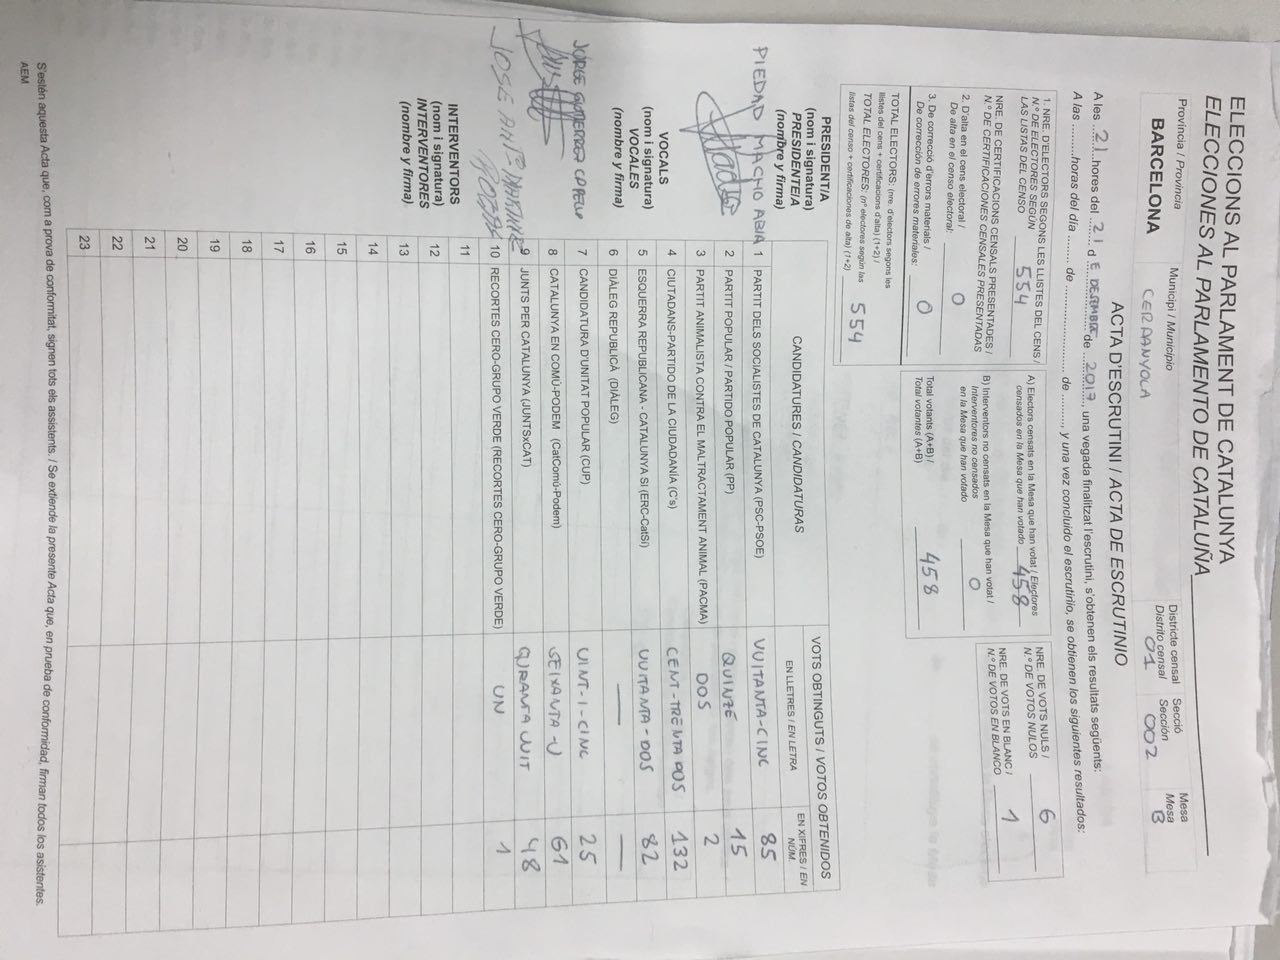 ELECCIONS AL PARLAMENT DE CATALUNYA
ELECCIONES AL PARLAMENTO DE CATALUÑA
Província / Provincia
BARCELONA
Municipi / Municipio
CERDANYOLA
Districte censal
Distrito censal
01
Secció
Sección
002
Mesa
Mesa
B
ACTA D'ESCRUTINI / ACTA DE ESCRUTINIO
A les 21 hores del 21 d E DESEMBRE de 2017, una vegada finalitzat l'escrutini, s'obtenen els resultats següents:
A las ..........horas del día ......... de ........................ de ........., y una vez concluido el escrutinio, se obtienen los siguientes resultados:
1. NRE. D'ELECTORS SEGONS LES LLISTES DEL CENS /
N.º DE ELECTORES SEGÚN
LAS LISTAS DEL CENSO 554
NRE. DE CERTIFICACIONS CENSALS PRESENTADES /
N.º DE CERTIFICACIONES CENSALES PRESENTADAS
2. D'alta en el cens electoral /
De alta en el censo electoral: 0
3. De correcció d'errors materials /
De corrección de errores materiales: 0
TOTAL ELECTORS: (nre. d'electors segons les
llistes del cens + certificacions d'alta) (1+2) /
TOTAL ELECTORES: (nº electores según las
listas del censo + certificaciones de alta) (1+2) 554
A) Electors censats en la Mesa que han votat / Electores
censados en la Mesa que han votado 458
B) Interventors no censats en la Mesa que han votat /
Interventores no censados
en la Mesa que han votado 0
Total votants (A+B) /
Total votantes (A+B) 458
NRE. DE VOTS NULS /
N.º DE VOTOS NULOS 6
NRE. DE VOTS EN BLANC /
N.º DE VOTOS EN BLANCO 1
PRESIDENT/A
(nom i signatura)
PRESIDENTE/A
(nombre y firma)
PIEDAD MACHO ABIA
VOCALS
(nom i signatura)
VOCALES
(nombre y firma)
JORGE GUTIERREZ
JOSE ANT° MARTINEZ
INTERVENTORS
(nom i signatura)
INTERVENTORES
(nombre y firma)
CANDIDATURES / CANDIDATURAS
VOTS OBTINGUTS / VOTOS OBTENIDOS
EN LLETRES / EN LETRA
EN XIFRES / EN NÚM.
1 PARTIT DELS SOCIALISTES DE CATALUNYA (PSC-PSOE) VUITANTA-CINC 85
2 PARTIT POPULAR / PARTIDO POPULAR (PP) QUINZE 15
3 PARTIT ANIMALISTA CONTRA EL MALTRACTAMENT ANIMAL (PACMA) DOS 2
4 CIUTADANS-PARTIDO DE LA CIUDADANÍA (C's) CENT-TRENTA DOS 132
5 ESQUERRA REPUBLICANA - CATALUNYA SI (ERC-CatSí) VUITANTA-DOS 82
6 DIÀLEG REPUBLICÀ (DIÀLEG) — —
7 CANDIDATURA D'UNITAT POPULAR (CUP) VINT-I-CINC 25
8 CATALUNYA EN COMÚ-PODEM (CatComú-Podem) SEIXANTA-U 61
9 JUNTS PER CATALUNYA (JUNTSxCAT) QURANTA VUIT 48
10 RECORTES CERO-GRUPO VERDE (RECORTES CERO-GRUPO VERDE) UN 1
11
12
13
14
15
16
17
18
19
20
21
22
23
S'estén aquesta Acta que, com a prova de conformitat, signen tots els assistents. / Se extiende la presente Acta que, en prueba de conformidad, firman todos los asistentes.
AEM